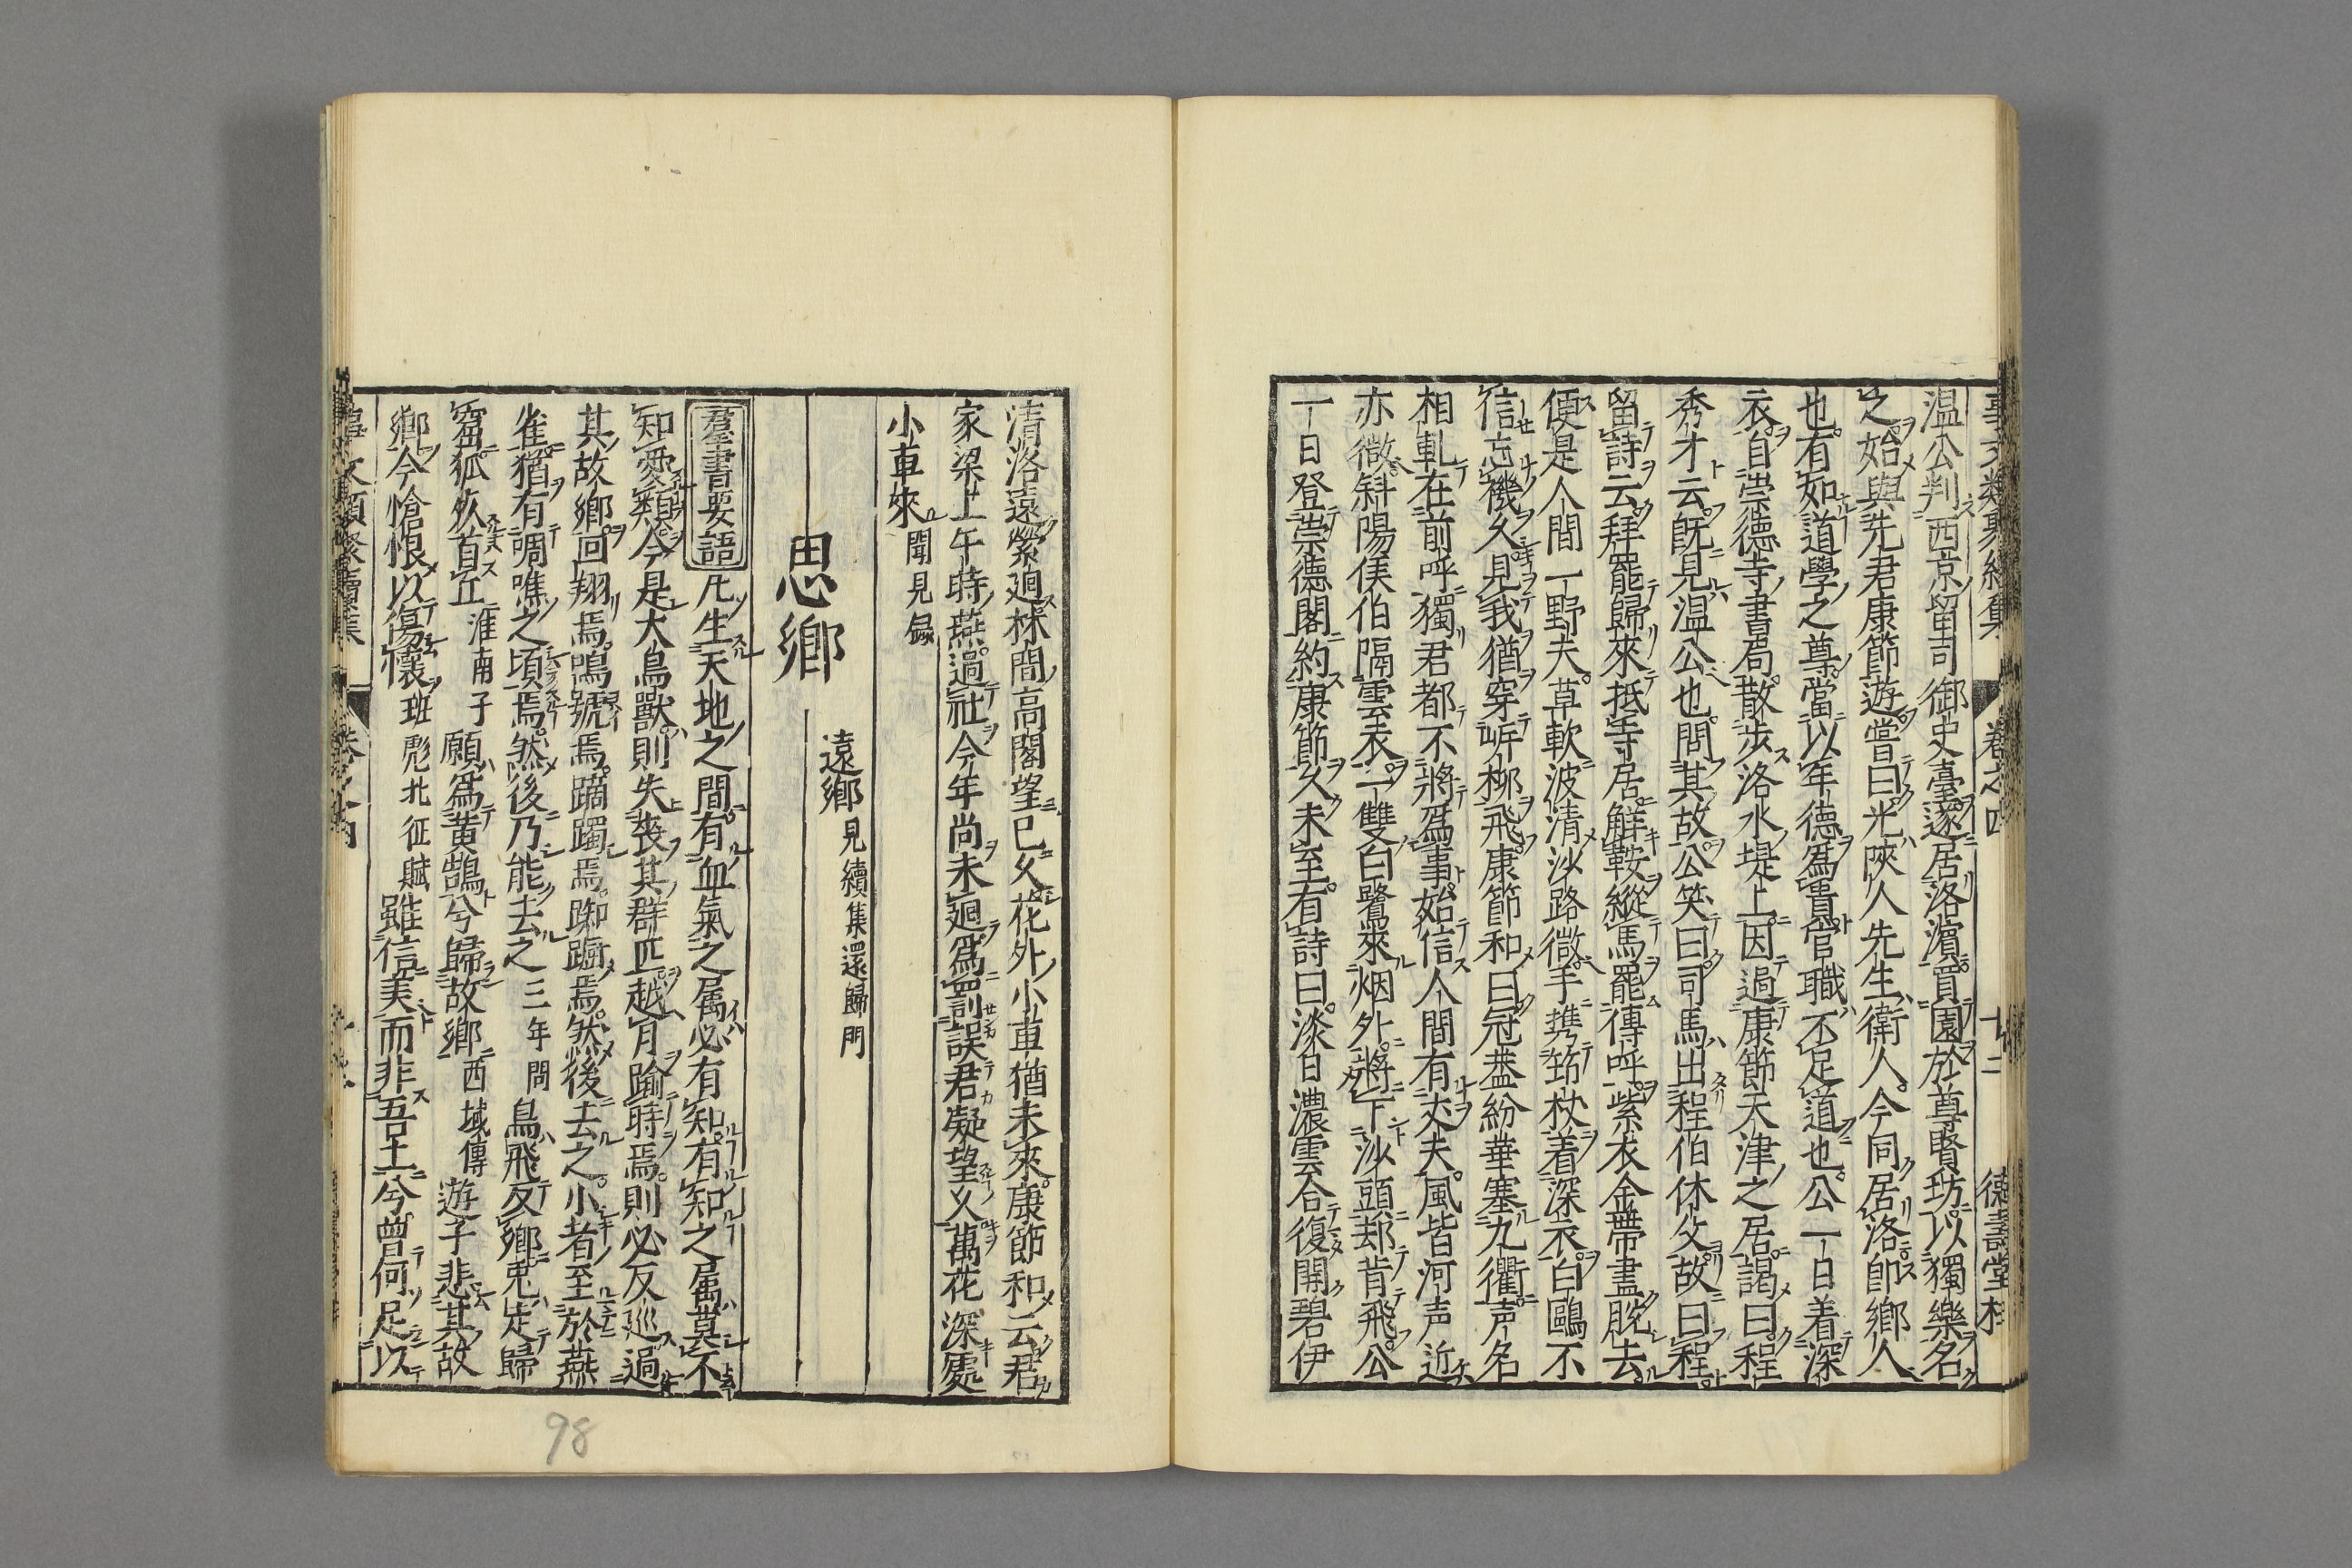 温公判西京留司御史臺遂居洛濱買園於尊賢坊以獨樂名
之始與先君康節遊嘗曰光陝人先生衛人今同居洛即鄉人
也有如道學之尊當以年德爲貴官職不足道也公一日着深
衣自崇德寺書局散步洛水堤上因過康節天津之居謁曰程
秀才云既見温公也問其故公笑曰司馬出程伯休父故曰程
留詩云拜罷歸來抵寺居解鞍縱馬罷傳呼紫衣金帶盡脫去
便是人間一野夫草軟波清沙路微手携筇杖着深衣白鷗不
信忘機久見我猶穿岸柳飛康節和曰冠盖紛華塞九衢声名
相軋在前呼獨君都不將爲事始信人間有丈夫風皆河声近
亦微斜陽俟伯隔雲衣一雙白鷺來烟外將下沙頭却背飛公
一日登崇德閣約康節久未至有詩曰淡日濃雲合復開碧伊
清洛遠縈廻林間高閣望已久花外小車猶未來康節和云君
家梁上午時燕過社今年尚未廻爲罰誤君凝望久萬花深處
小車來 聞見録
思鄉
遠鄉 見續集還歸門
羣書要語 凡生天地之間有血氣之属必有知有知之属莫不
知愛類今是大鳥獸則失喪其群匹越月踰時焉則必反巡過
其故鄉回翔焉鳴號焉蹢躅焉踟蹰焉然後去之小者至於燕
雀猶有啁噍之頃焉然後乃能去之 三年問 鳥飛反鄉兎走歸
窟狐死首丘 淮南子 願爲黄鵠兮歸故鄉 西域傳 遊子悲其故
鄉今愴恨以傷懷 班彪北征賦 雖信美而非吾土兮曾何足以
98